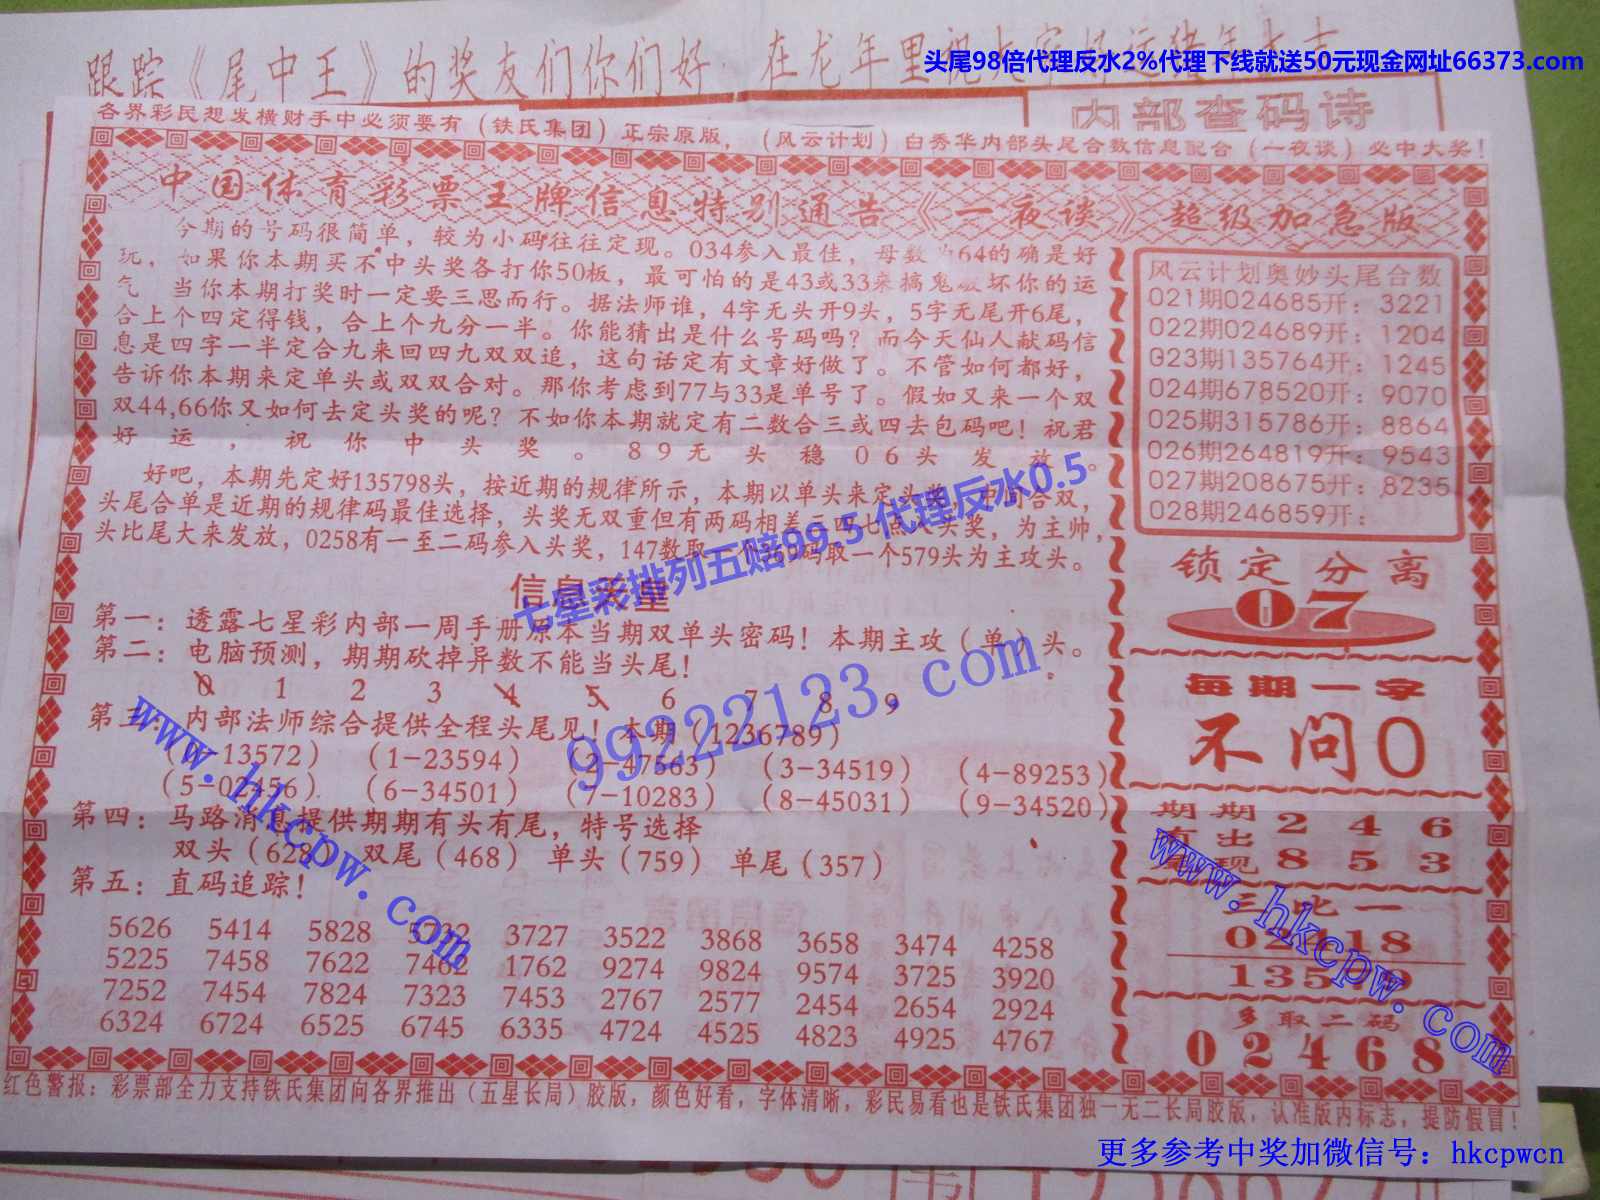 跟踪《尾中王》的奖友们你们好
头尾98倍代理反水2%代理下线就送50元现金网址66373.com
内部查码诗
各界彩民想发横财手中必须要有(铁氏集团)正宗原版,(风云计划)白秀华内部头尾合数信息配合(一夜谈)必中大奖!
中国体育彩票王牌信息特别通告《一夜谈》超级加急版
今期的号码很简单,较为小码往往定现。034参入最佳,母数为64的确是好
玩,如果你本期买不中头奖各打你50板,最可怕的是43或33来搞鬼破坏你的运
气 当你本期打奖时一定要三思而行。据法师谁,4字无头开9头,5字无尾开6尾,
合上个四定得钱,合上个九分一半。你能猜出是什么号码吗?而今天仙人献码信
息是四字一半定合九来回四九双双追,这句话定有文章好做了。不管如何都好,
告诉你本期来定单头或双双合对。那你考虑到77与33是单号了。假如又来一个双
双44,66你又如何去定头奖的呢?不如你本期就定有二数合三或四去包码吧!祝君
好运,祝你中头奖。89无头稳06头发放。
好吧,本期先定好135798头,按近期的规律所示,本期以单头来定头奖,中间合双,
头尾合单是近期的规律码最佳选择,头奖无双重但有两码相差三四七点入头奖,为主帅,
头比尾大来发放,0258有一至二码参入头奖,147数取一个369码取一个579头为主攻头。
七星彩排列五赔99.5 代理反水0.5
信息天堂
第一:透露七星彩内部一周手册原本当期双单头密码!本期主攻(单)头。
第二:电脑预测,期期砍掉异数不能当头尾!
0 1 2 3 4 5 6 7 8 9
第三:内部法师综合提供全程头尾见!本期(1236789)
(0-13572) (1-23594) (2-47563) (3-34519) (4-89253)
(5-02456) (6-34501) (7-10283) (8-45031) (9-34520)
第四:马路消息提供期期有头有尾,特号选择
双头(628) 双尾(468) 单头(759) 单尾(357)
第五:直码追踪!
5626 5414 5828 5732 3727 3522 3868 3658 3474 4258
5225 7458 7622 7462 1762 9274 9824 9574 3725 3920
7252 7454 7824 7323 7453 2767 2577 2454 2654 2924
6324 6724 6525 6745 6335 4724 4525 4823 4925 4767
风云计划奥妙头尾合数
021期024685开:3221
022期024689开:1204
023期135764开:1245
024期678520开:9070
025期315786开:8864
026期264819开:9543
027期208675开:8235
028期246859开:
锁定分离
07
每期一字
不问0
期期 2 4 6
有出
现 8 5 3
三比一
02418
135
多取二码
02468
99222123.com
www.hkcpw.com
www.hkcpw.com
红色警报:彩票部全力支持铁氏集团向各界推出(五星长局)胶版,颜色好看,字体清晰,彩民易看也是铁氏集团独一无二长局胶版,认准版内标志,提防假冒!
更多参考中奖加微信号:hkcpwcn